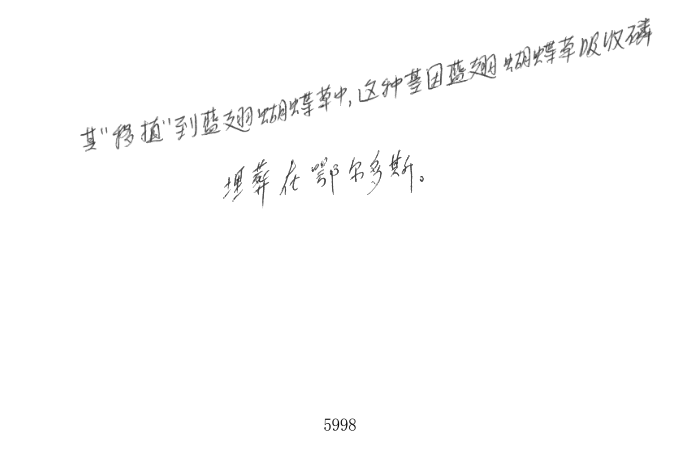 其"移植"到蓝翅蝴蝶草中,这种基因蓝翅蝴蝶草吸收磷
埋葬在鄂尔多斯。
5998